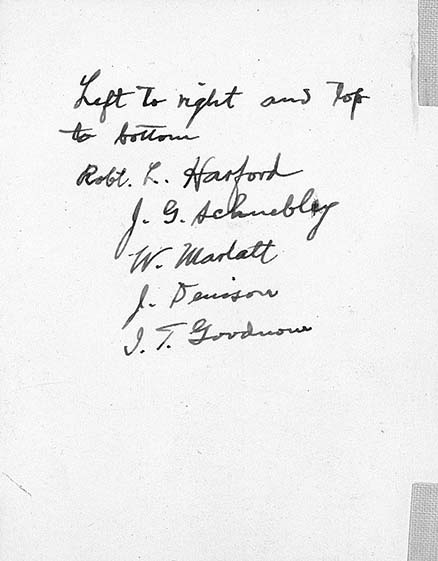 Left to right and top
to bottom
Robt. L. Harford
J. G. Schnebley
W. Marlatt
J. Denison
I. T. Goodnow